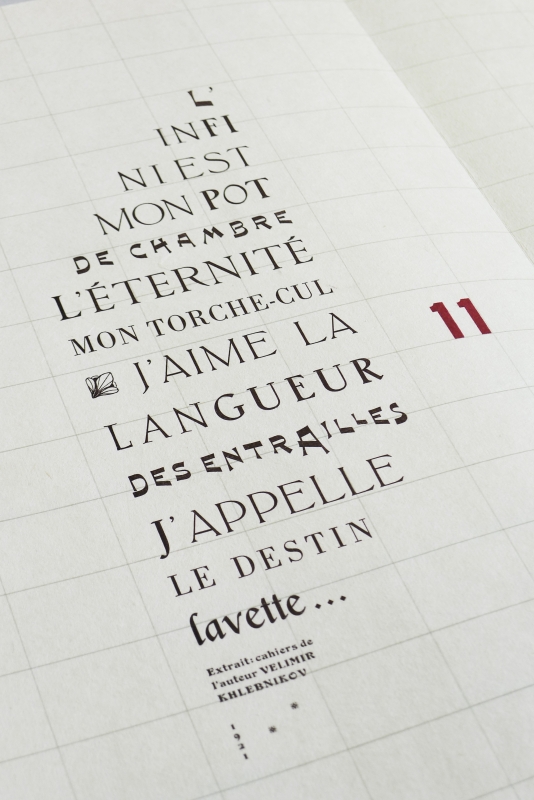 L'
INFI
NI EST
MON POT
DE CHAMBRE
L'ÉTERNITÉ
MON TORCHE-CUL
J'AIME LA
LANGUEUR
DES ENTRAILLES
J'APPELLE
LE DESTIN
lavette...
Extrait: cahiers de
l'auteur VELIMIR
KHLEBNIKOV
1921
11